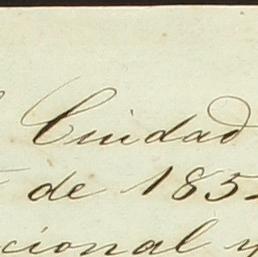 Ciudad
de 185
cional y